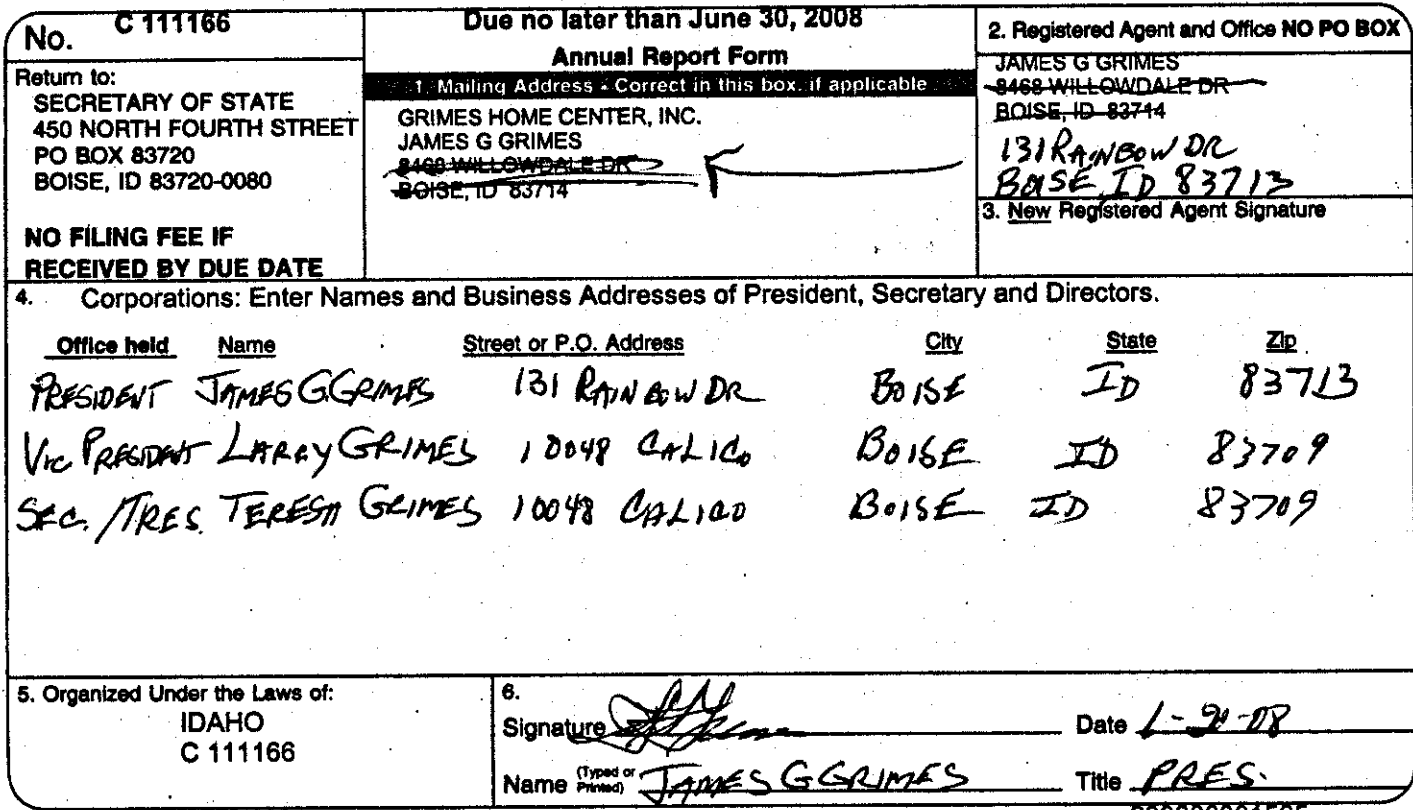 No. C 111166
Return to:
SECRETARY OF STATE
450 NORTH FOURTH STREET
PO BOX 83720
BOISE, ID 83720-0080
NO FILING FEE IF
RECEIVED BY DUE DATE
Due no later than June 30, 2008
Annual Report Form
1. Mailing Address - Correct in this box, if applicable
GRIMES HOME CENTER, INC.
JAMES G GRIMES
8468 WILLOWDALE DR
BOISE, ID 83714
2. Registered Agent and Office NO PO BOX
JAMES G GRIMES
8468 WILLOWDALE DR
BOISE, ID 83714
131 RAINBOW DR
BOISE, ID 83713
3. New Registered Agent Signature
4. Corporations: Enter Names and Business Addresses of President, Secretary and Directors.
Office held Name Street or P.O. Address City State Zip
PRESIDENT JAMES G GRIMES 131 RAINBOW DR BOISE ID 83713
VIC PRESIDENT LARRY GRIMES 10048 CALICO BOISE ID 83709
SEC. /TRES. TERESA GRIMES 10048 CALICO BOISE ID 83709
5. Organized Under the Laws of:
IDAHO
C 111166
6.
Signature Date
Name (Typed or Printed) JAMES G GRIMES Title PRES.